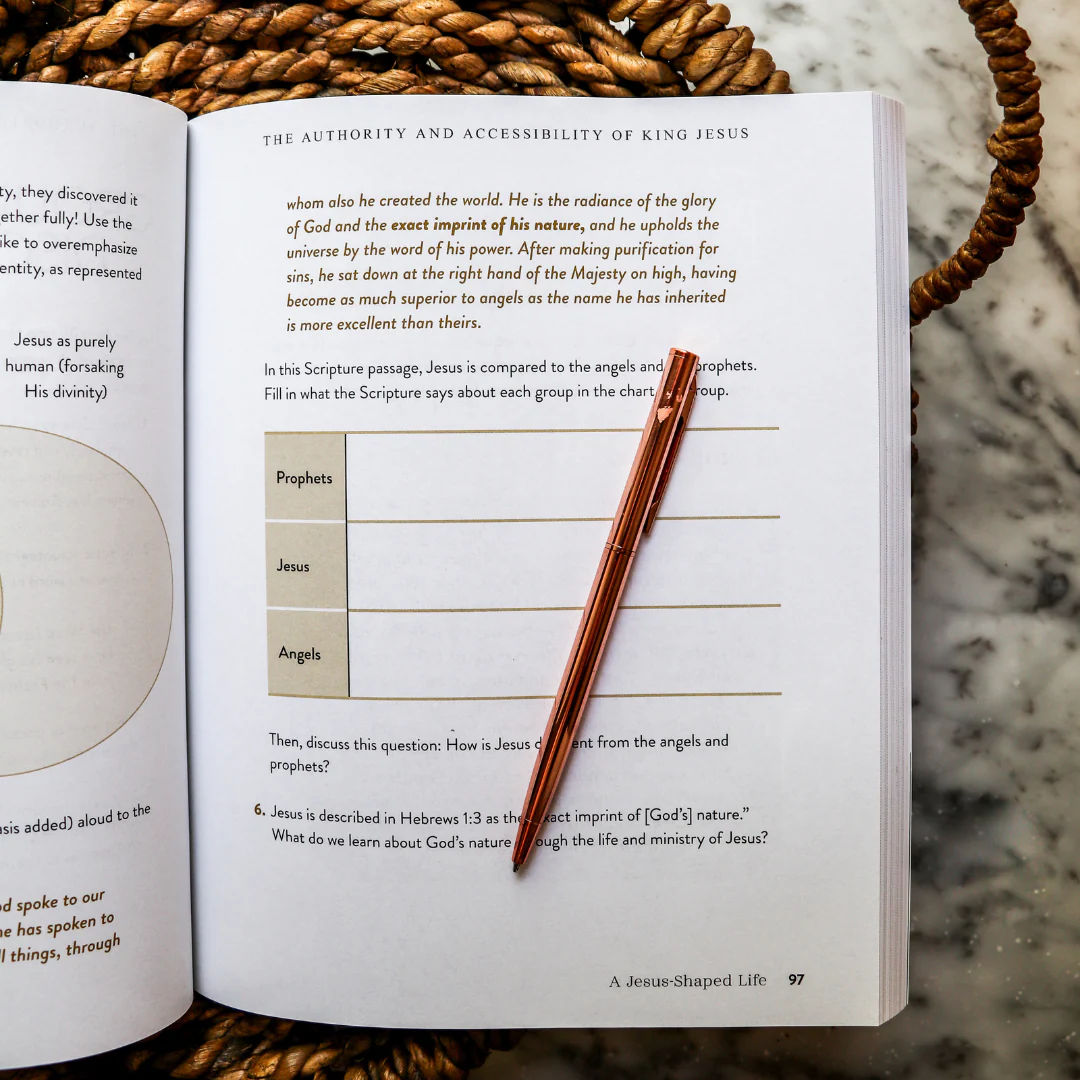 ty, they discovered it
ether fully! Use the
ike to overemphasize
entity, as represented
Jesus as purely
human (forsaking
His divinity)
asis added) aloud to the
d spoke to our
he has spoken to
ll things, through
THE AUTHORITY AND ACCESSIBILITY OF KING JESUS
whom also he created the world. He is the radiance of the glory
of God and the exact imprint of his nature, and he upholds the
universe by the word of his power. After making purification for
sins, he sat down at the right hand of the Majesty on high, having
become as much superior to angels as the name he has inherited
is more excellent than theirs.
In this Scripture passage, Jesus is compared to the angels and prophets.
Fill in what the Scripture says about each group in the chart roup.
Prophets
Jesus
Angels
Then, discuss this question: How is Jesus d ent from the angels and
prophets?
6. Jesus is described in Hebrews 1:3 as the xact imprint of [God's] nature."
What do we learn about God's nature ough the life and ministry of Jesus?
A Jesus-Shaped Life 97